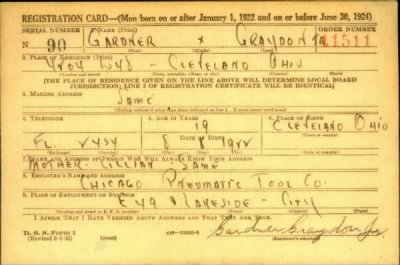 REGISTRATION CARD—(Men born on or after January 1, 1922 and on or before June 30, 1924)
SERIAL NUMBER 1. NAME (Print) ORDER NUMBER
N 90 GARDNER x GRAYDON JR. 11511
2. PLACE OF RESIDENCE (Print)
CLEVELAND OHIO
[THE PLACE OF RESIDENCE GIVEN ON THE LINE ABOVE WILL DETERMINE LOCAL BOARD
JURISDICTION; LINE 2 OF REGISTRATION CERTIFICATE WILL BE IDENTICAL]
3. MAILING ADDRESS
SAME
4. TELEPHONE 5. AGE IN YEARS 6. PLACE OF BIRTH
19 CLEVELAND OHIO
FL 8 8 1922
7. NAME AND ADDRESS OF PERSON WHO WILL ALWAYS KNOW YOUR ADDRESS
MOTHER LILLIAN SAME
8. EMPLOYER'S NAME AND ADDRESS
CHICAGO PNEUMATIC TOOL CO.
9. PLACE OF EMPLOYMENT OR BUSINESS
E 49 LAKESIDE - CITY
I AFFIRM THAT I HAVE VERIFIED ABOVE ANSWERS AND THAT THEY ARE TRUE.
D. S. S. Form 1
(Revised 6-1-42)